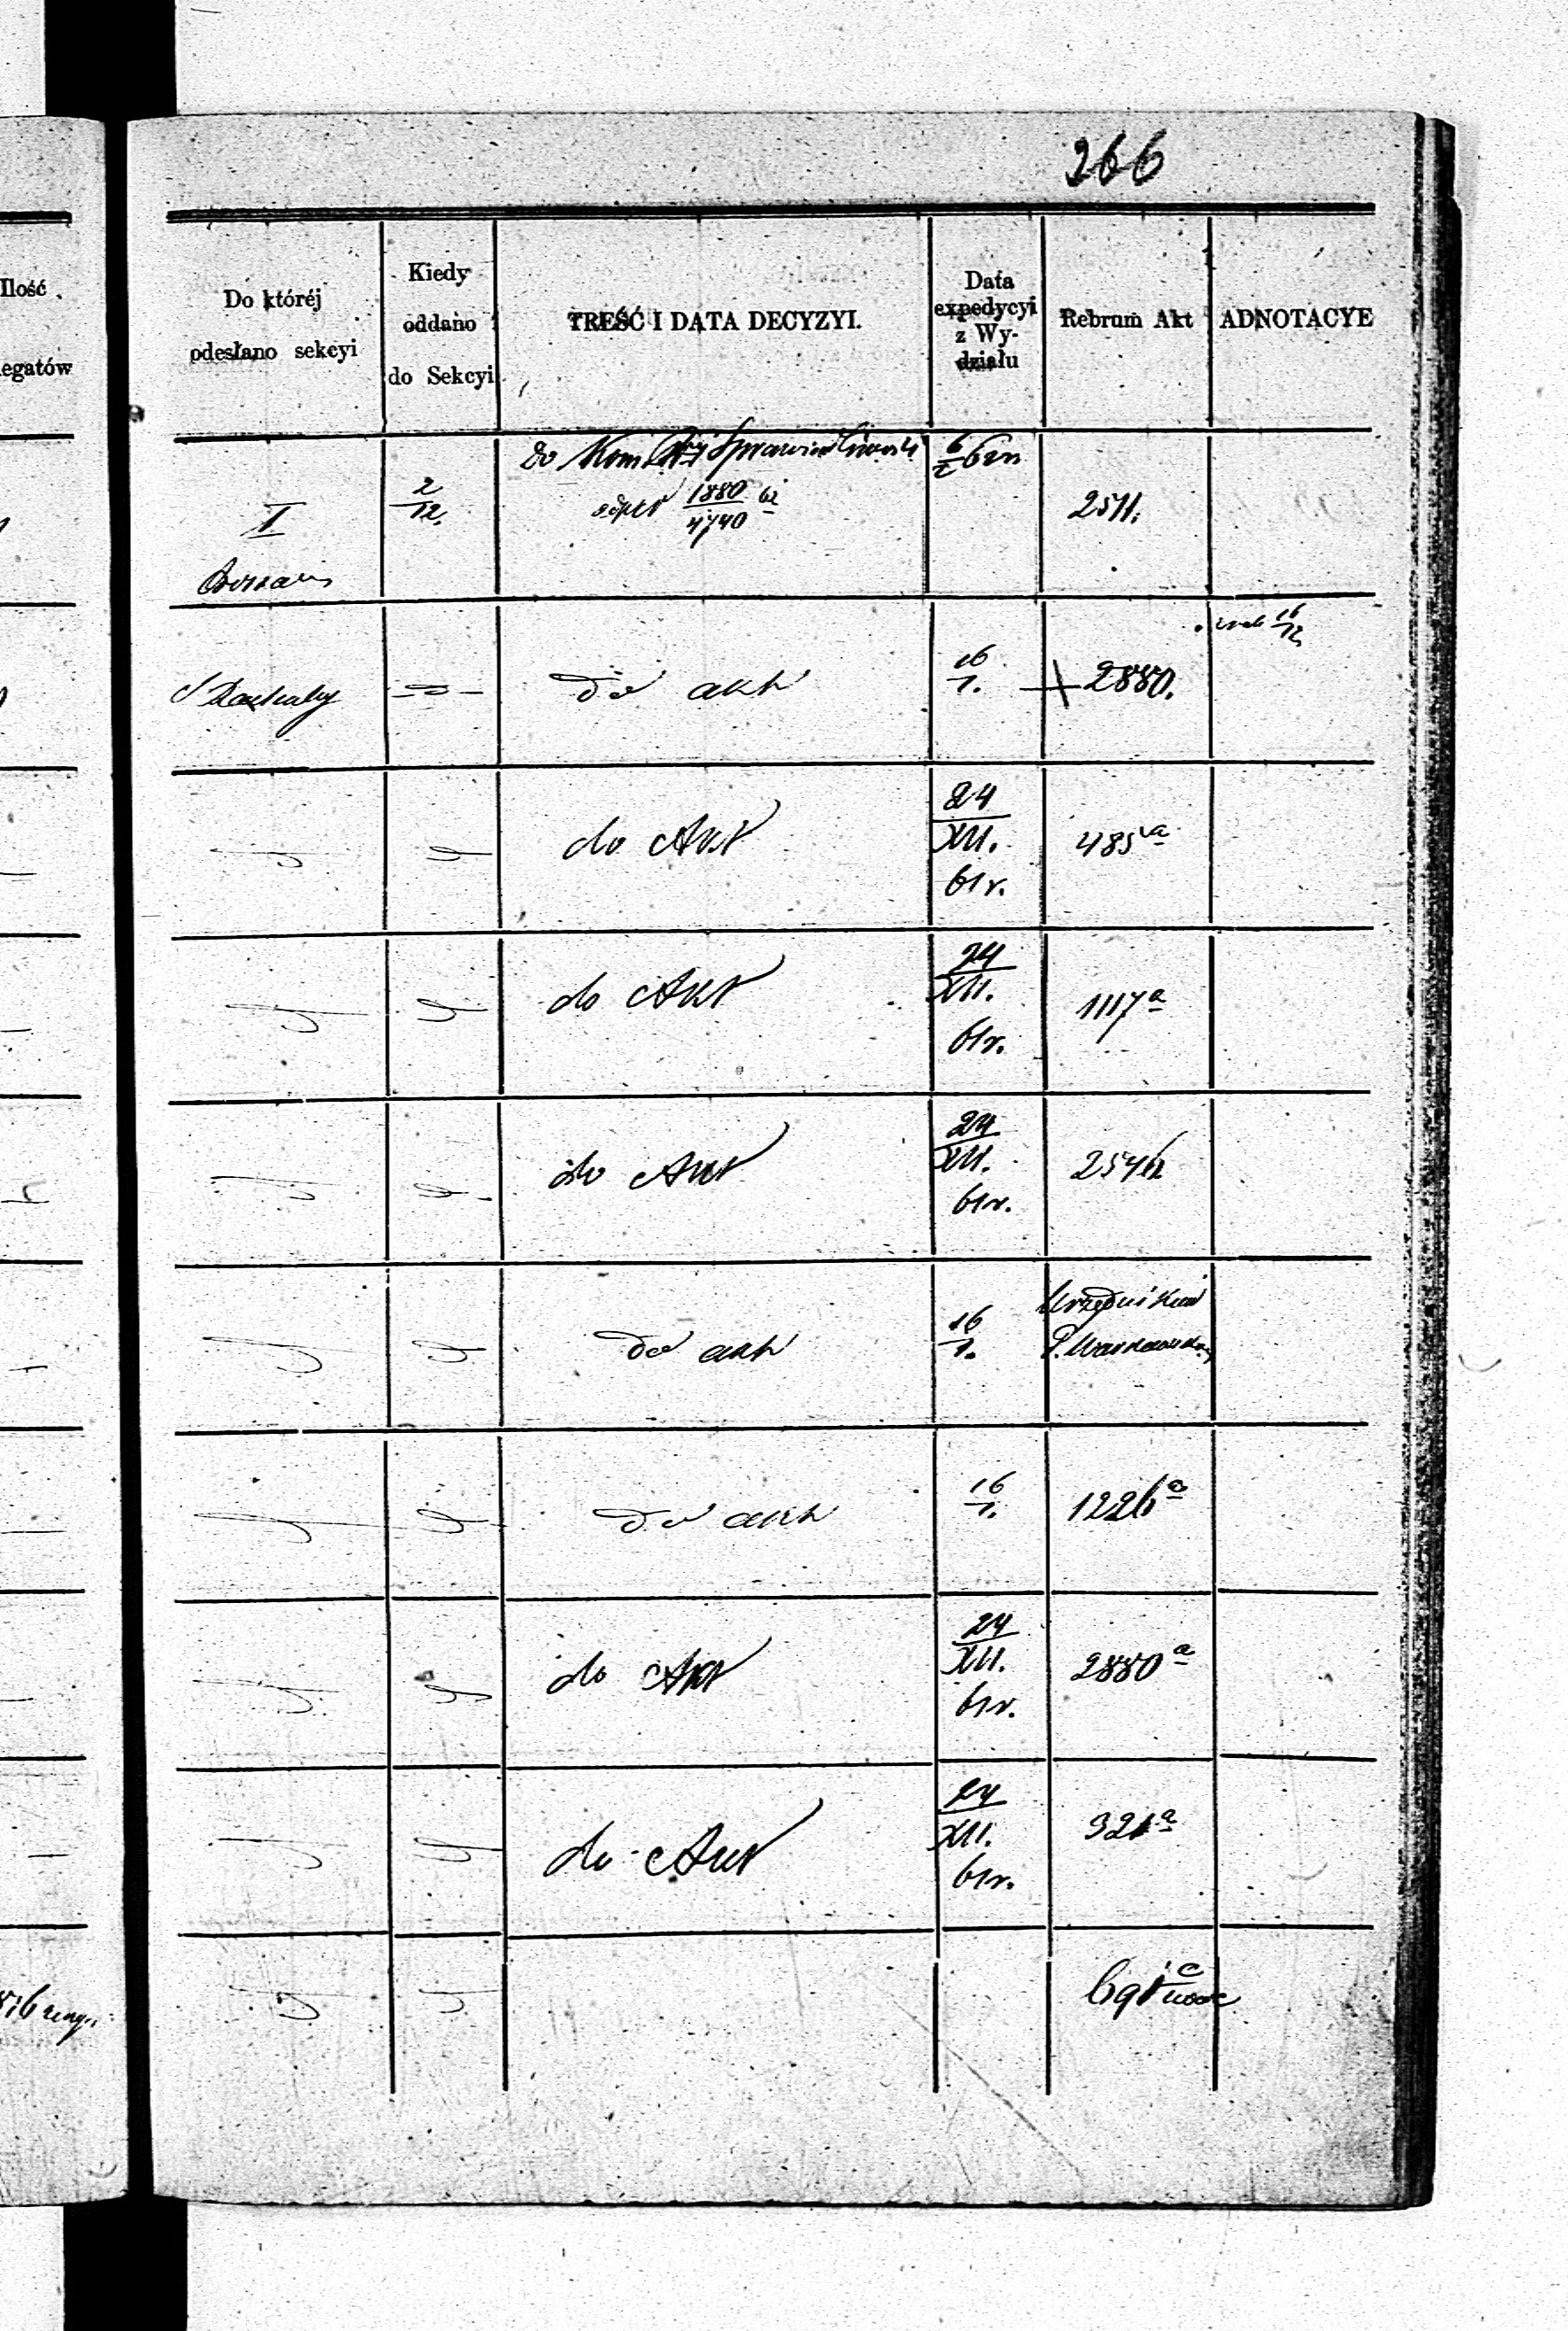 266
Ilość
egatów
Do któréj
odesłano sekcyi
Kiedy
oddano
do Sekcyi
TREŚĆ I DATA DECYZYI.
Data
expedycyi
z Wy-
działu
Rebrum Akt
ADNOTACYE
I
2/12.
do Kom Rz Sprawiedliwości
1880/4740
2511.
do akt
16/1.
2880.
16/12
do Akt
24/XII.
61r.
485 a
do Akt
24/XII.
61r.
1117 a
do Akt
24/XII.
61r.
do akt
16/1.
Urzędników
do akt
16/1.
1226 a
do Akt
24/XII.
61r.
2880 a
do Akt
24/XII.
61r.
321 a